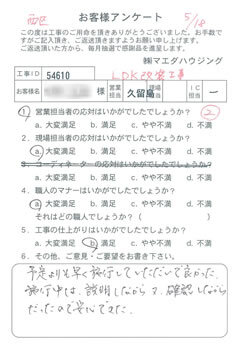 西区
お客様アンケート
5/18
この度は工事のご用命を頂きありがとうございました。お手数で
すがご記入頂き、ご返送頂きますようお願い申し上げます。
ご返送頂いた方から、毎月抽選で感謝品を進呈します。
㈱マエダハウジング
工事ID 54610 LDK改装工事
様 営業担当 久留島 現場担当 IC担当 ー
1. 営業担当者の応対はいかがでしたでしょうか? ②
a. 大変満足 b. 満足 c. やや不満 d. 不満
2. 現場担当者の応対はいかがでしたでしょうか?
a. 大変満足 b. 満足 c. やや不満 d. 不満
3. コーディネーターの応対はいかがでしたでしょうか?
a. 大変満足 b. 満足 c. やや不満 d. 不満
4. 職人のマナーはいかがでしたでしょうか?
a. 大変満足 b. 満足 c. やや不満 d. 不満
それはどの職人でしょうか?( )
5. 工事の仕上がりはいかがでしたでしょうか?
a. 大変満足 b. 満足 c. やや不満 d. 不満
6. その他、ご意見・ご要望をお書き下さい。
予定よりも早く施行していただいて良かった。
施行中は、説明しながら、確認しながら
だったので安心できた。